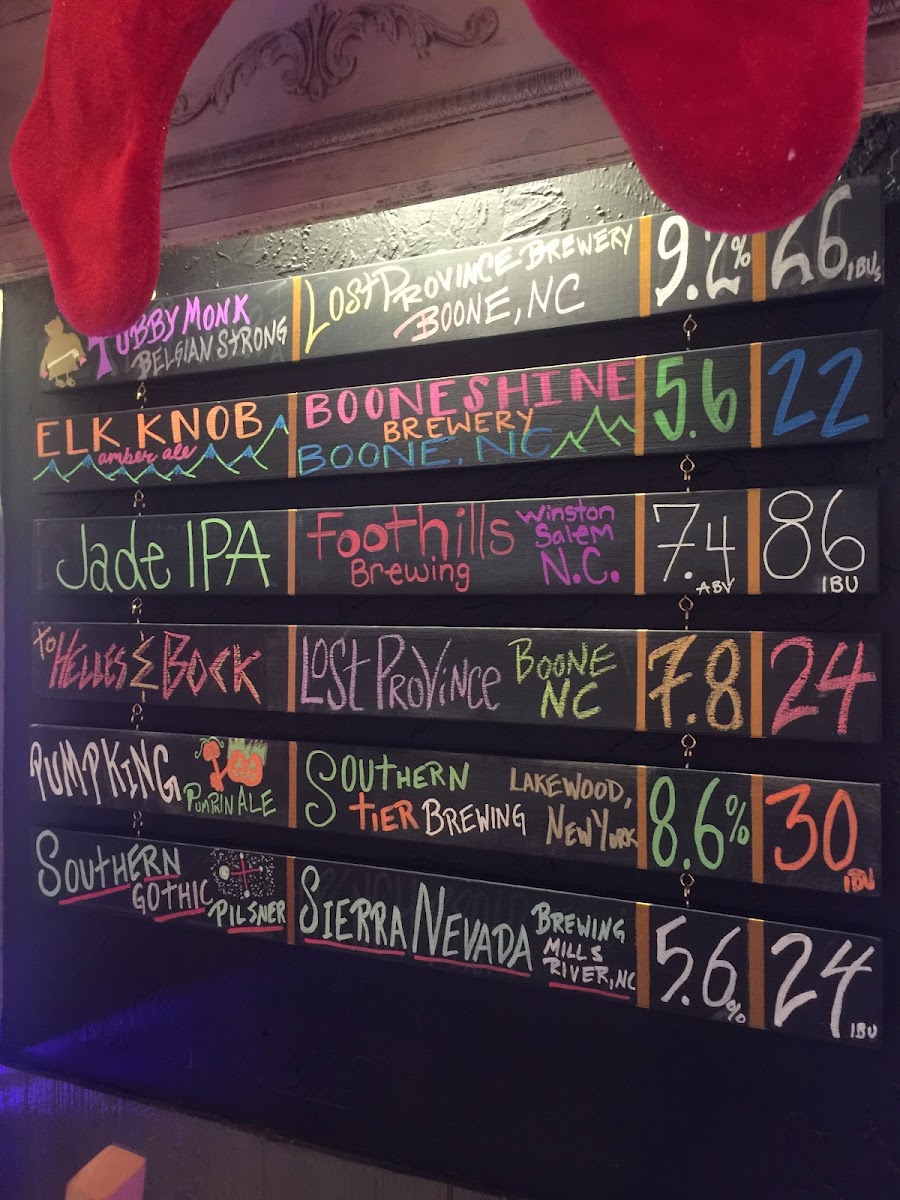 TUBBY MONK
BELGIAN STRONG
LOST PROVINCE BREWERY
BOONE, NC
9.2%
26 IBUs
ELK KNOB
amber ale
BOONESHINE
BREWERY
BOONE, NC
5.6
22
Jade IPA
Foothills
Brewing
Winston
Salem
N.C.
7.4
ABV
86
IBU
TO HELLES & BOCK
LOST PROVINCE
BOONE
NC
7.8
24
PUMPKING
PUMPKIN ALE
SOUTHERN
TIER BREWING
LAKEWOOD,
NEW YORK
8.6%
30
IBU
SOUTHERN
GOTHIC
PILSNER
SIERRA NEVADA
BREWING
MILLS
RIVER, NC
5.6%
24
IBU